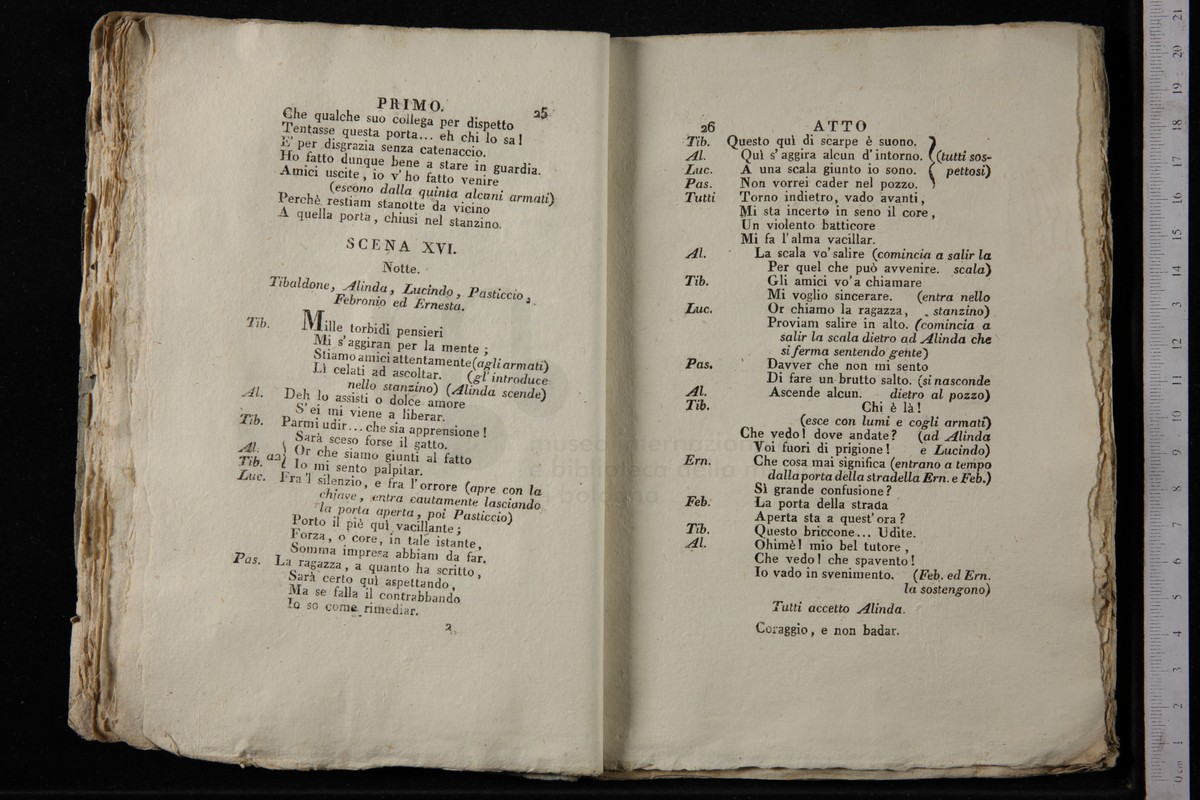 PRIMO. 25
Che qualche suo collega per dispetto
Tentasse questa porta... eh chi lo sa!
E' per disgrazia senza catenaccio.
Ho fatto dunque bene a stare in guardia.
Amici uscite, io v'ho fatto venire
(escono dalla quinta alcuni armati)
Perchè restiam stanotte da vicino
A quella porta, chiusi nel stanzino.
SCENA XVI.
Notte.
Tibaldone, Alinda, Lucindo, Pasticcio,
Febronio ed Ernesta.
Tib. Mille torbidi pensieri
Mi s'aggiran per la mente;
Stiamo amici attentamente (agli armati)
Lì celati ad ascoltar. (gl'introduce
nello stanzino) (Alinda scende)
Al. Deh lo assisti o dolce amore
S'ei mi viene a liberar.
Tib. Parmi udir... che sia apprensione!
Sarà sceso forse il gatto.
Al. Or che siamo giunti al fatto
Tib. a2 Io mi sento palpitar.
Luc. Fra'l silenzio, e fra l'orrore (apre con la
chiave, entra cautamente lasciando
la porta aperta, poi Pasticcio)
Porto il piè quì vacillante;
Forza, o core, in tale istante,
Somma impresa abbiam da far.
Pas. La ragazza, a quanto ha scritto,
Sarà certo quì aspettando,
Ma se falla il contrabbando
Io so come rimediar.
2
26 ATTO
Tib. Questo quì di scarpe è suono.
Al. Quì s'aggira alcun d'intorno. (tutti sos-
Luc. A una scala giunto io sono. pettosi)
Pas. Non vorrei cader nel pozzo.
Tutti Torno indietro, vado avanti,
Mi sta incerto in seno il core,
Un violento batticore
Mi fa l'alma vacillar.
Al. La scala vo' salire (comincia a salir la
Per quel che può avvenire. scala)
Tib. Gli amici vo' a chiamare
Mi voglio sincerare. (entra nello
Luc. Or chiamo la ragazza, stanzino)
Proviam salire in alto. (comincia a
salir la scala dietro ad Alinda che
si ferma sentendo gente)
Pas. Davver che non mi sento
Di fare un brutto salto. (si nasconde
Al. Ascende alcun. dietro al pozzo)
Tib. Chi è là!
(esce con lumi e cogli armati)
Che vedo! dove andate? (ad Alinda
Voi fuori di prigione! e Lucindo)
Ern. Che cosa mai significa (entrano a tempo
dalla porta della stradella Ern. e Feb.)
Sì grande confusione?
Feb. La porta della strada
Aperta sta a quest'ora?
Tib. Questo briccone... Udite.
Al. Ohimè! mio bel tutore,
Che vedo! che spavento!
Io vado in svenimento. (Feb. ed Ern.
la sostengono)
Tutti accetto Alinda.
Coraggio, e non badar.